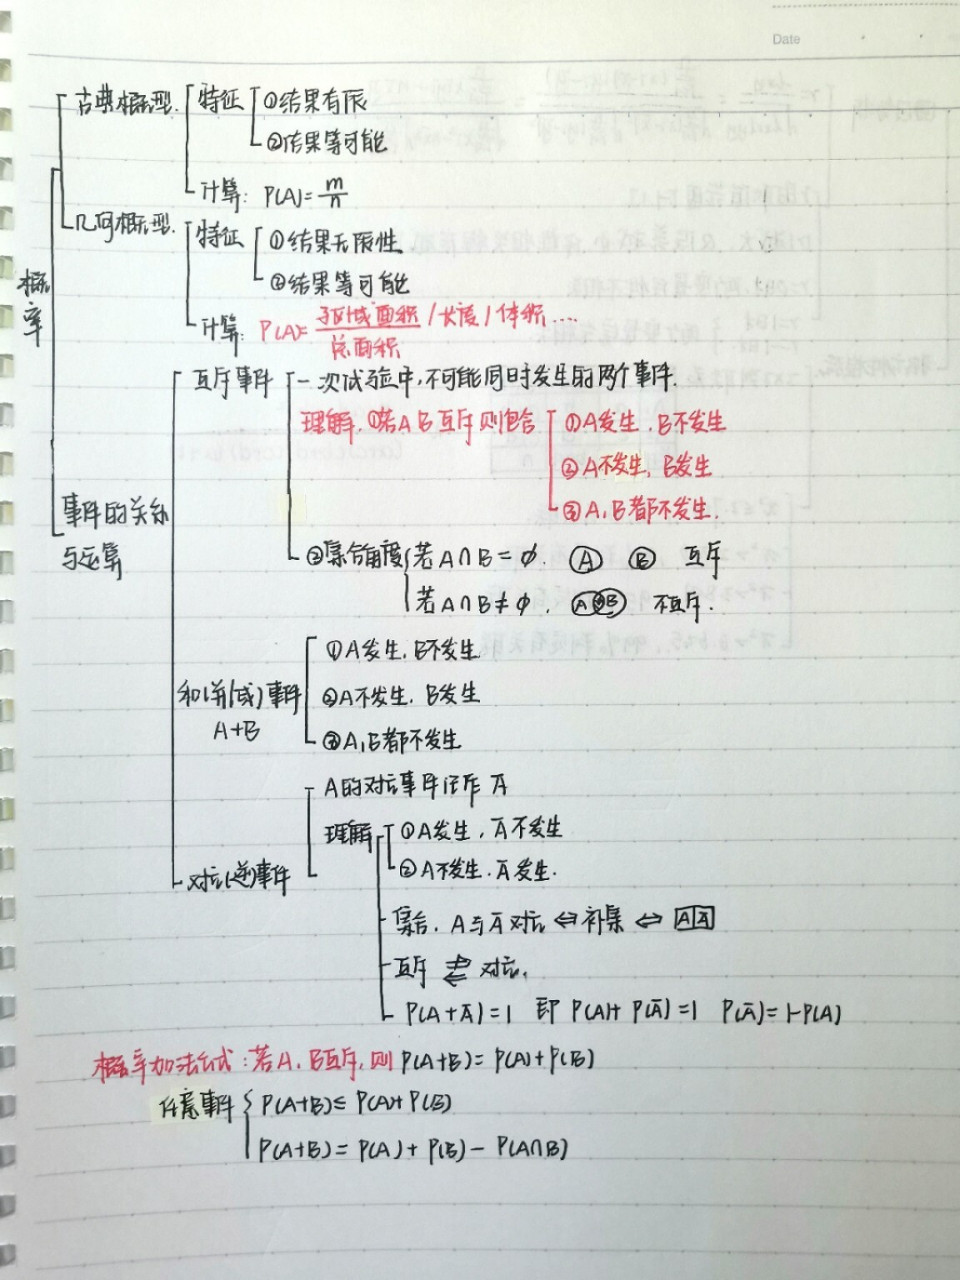 Date
概率
古典概型.
特征
①结果有限
②结果等可能
计算: P(A)=m/n
几何概型.
特征
①结果无限性
②结果等可能
计算: P(A)=子区域面积/总面积 /长度/体积....
事件的关系
与运算
互斥事件
一次试验中,不可能同时发生的两个事件.
理解.①若A B互斥则包含
①A发生.B不发生
②A不发生,B发生
③A,B都不发生.
②集合角度
若A∩B=∅. A B 互斥
若A∩B≠∅. A B 不互斥.
和(并)(或)事件
A+B
①A发生.B不发生
②A不发生.B发生
③A,B都不发生
对立(逆)事件
A的对立事件记作 Ā
理解
①A发生,Ā不发生
②A不发生.Ā发生.
集合.A与Ā对立⇔补集⇔ A Ā
互斥 ⇄ 对立.
P(A+Ā)=1 即 P(A)+P(Ā)=1 P(Ā)=1-P(A)
概率加法公式:若A.B互斥,则P(A+B)=P(A)+P(B)
任意事件
P(A+B)≤P(A)+P(B)
P(A+B)=P(A)+P(B)-P(A∩B)